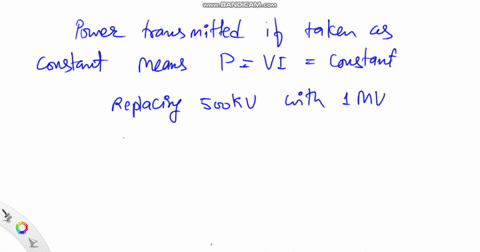 www.BANDICAM.com
Power transmitted if taken as
constant means P = VI = constant
Replacing 500KV with 1 MV